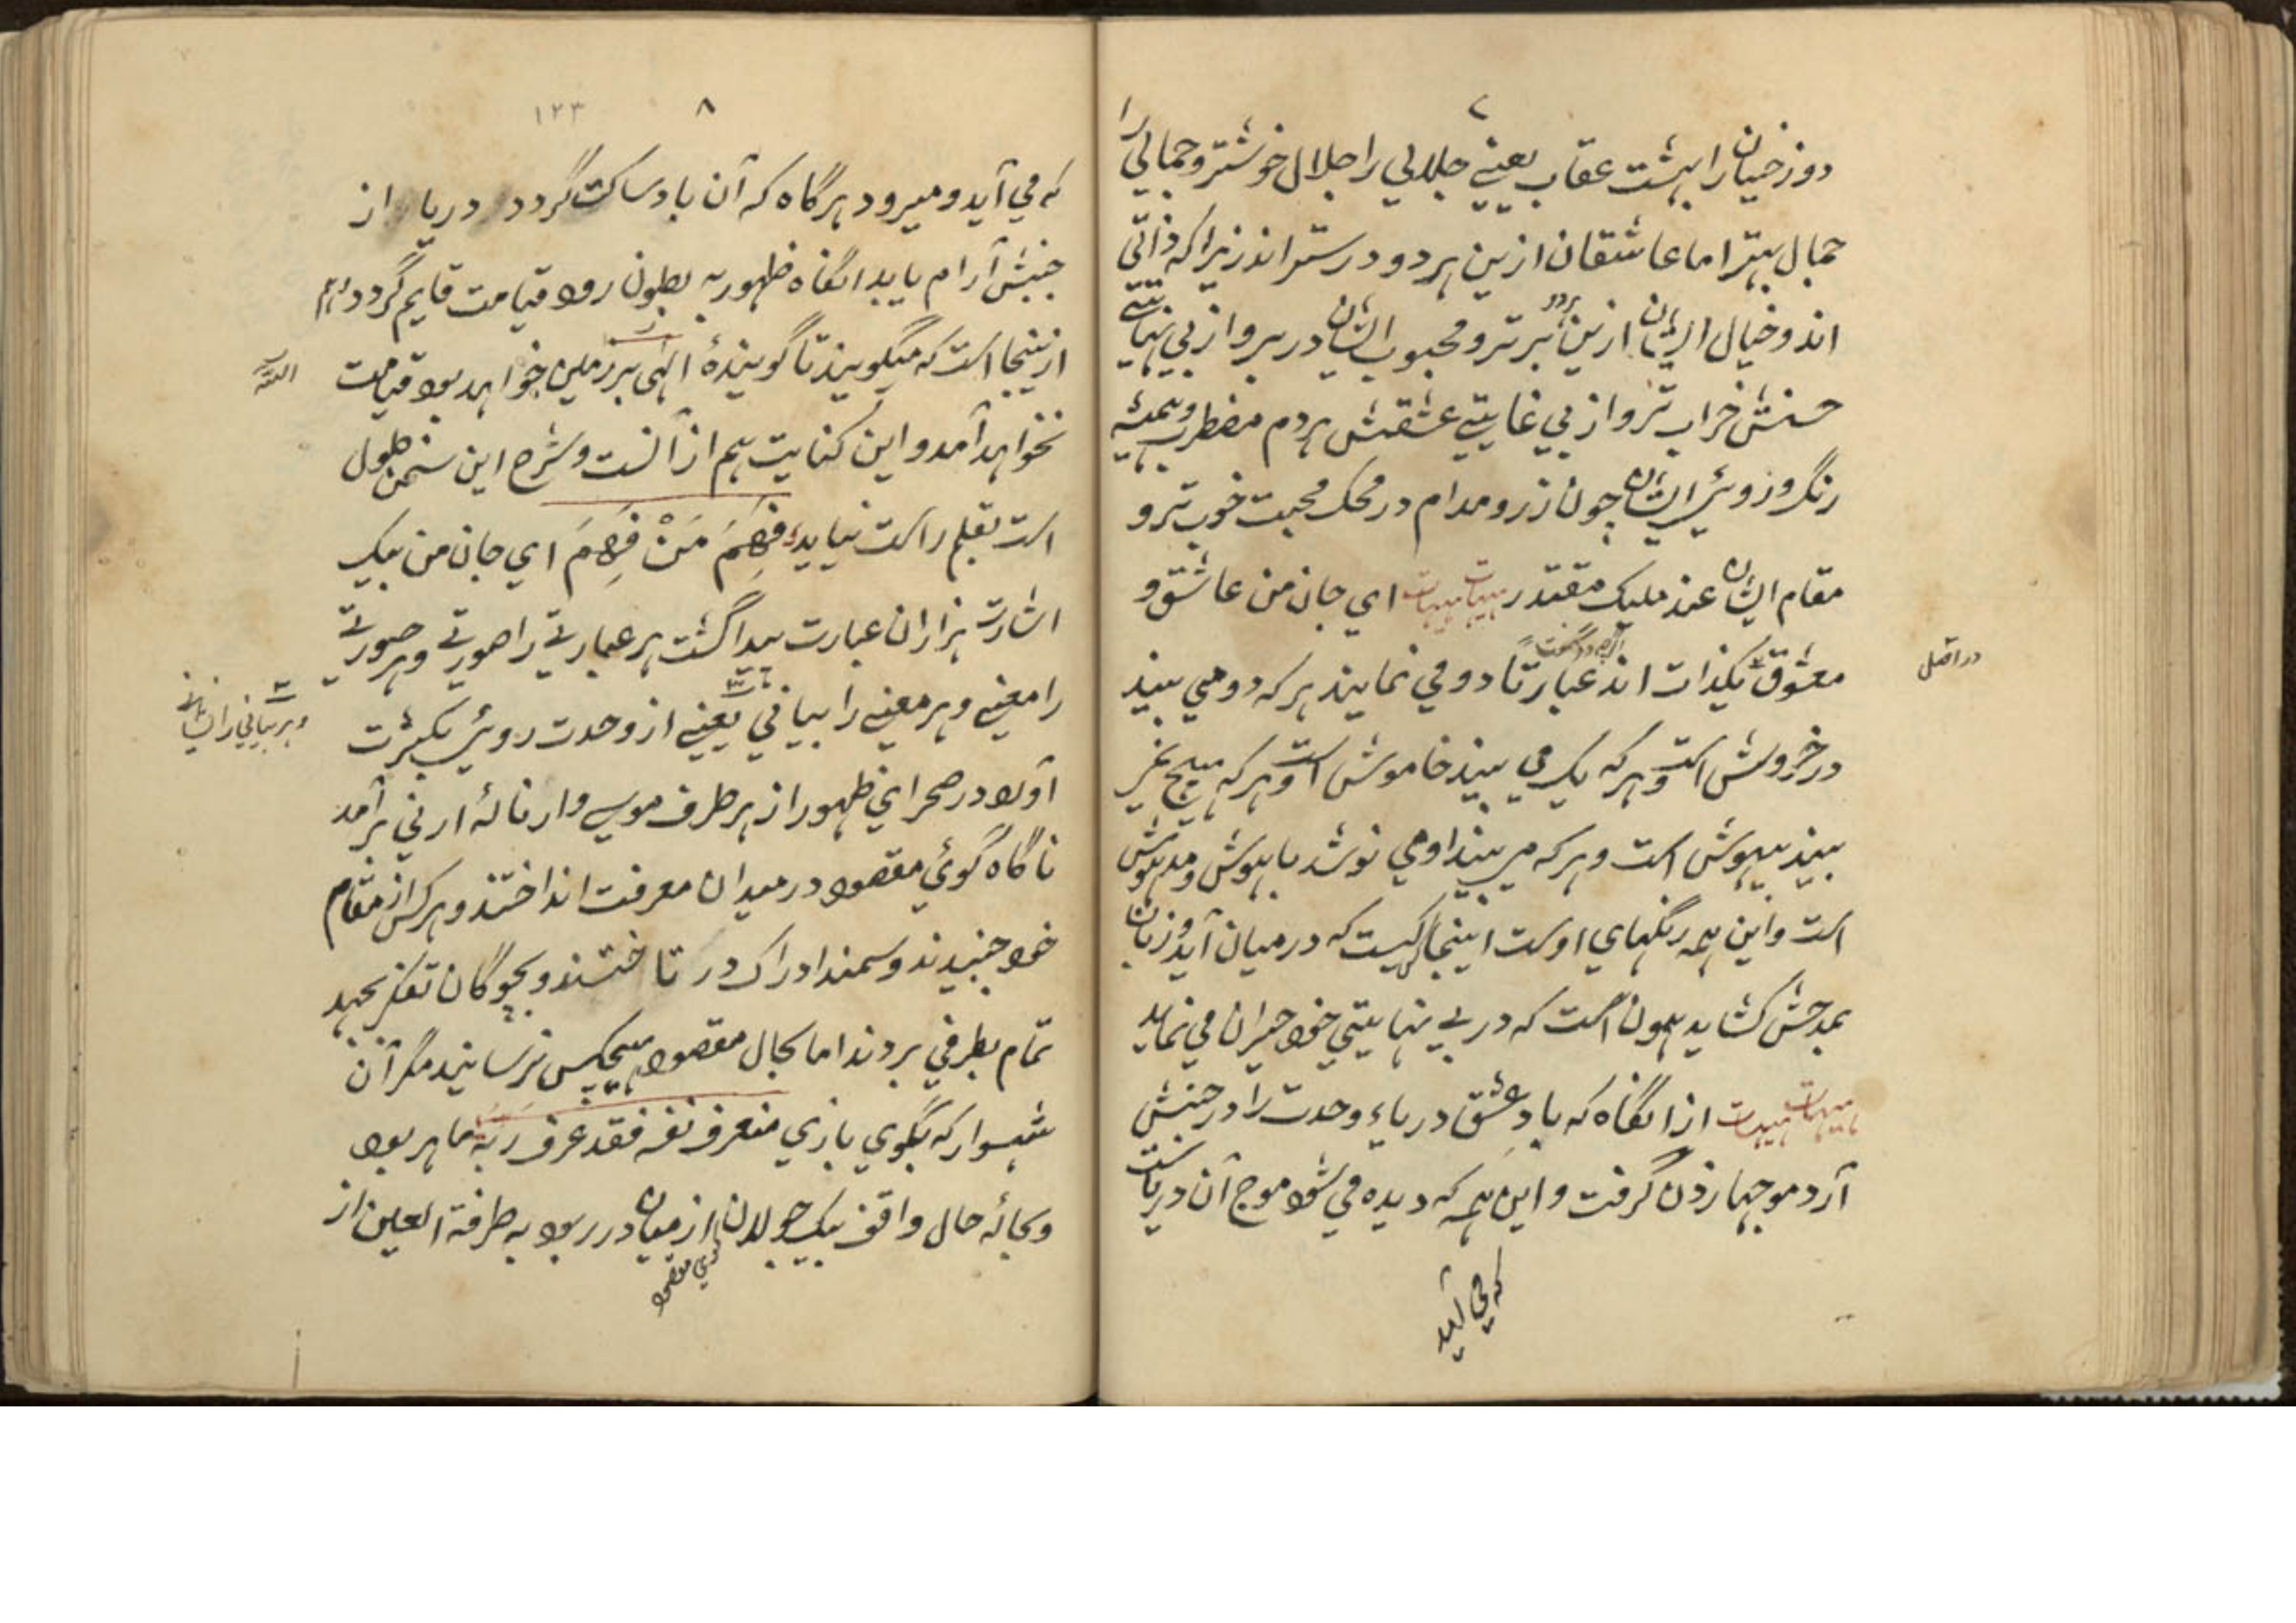 ۷
دوزخیان را بهشت عقاب یعنے جلالی را جلال خوشتر و جمالی را
جمال بهتر اما عاشقان ازین هر دو درستر اند زیرا که ذاتی
اند و خیال ایشان ازین هردو برتر و محبوب ایشان در سر و از بی نهایتے
حسنش خراب تر و از بی غایتے عشقش هر دم مضطرب و همیشه
رنگ و روئے ایشان چون زر و مدام در محک محبت خوب تر و
مقام ایشان عند ملیک مقتدر هیهات هیهات ای جان من عاشق و
معشوق یکذات اند عبارتا دو می نمایند هر که دو می بیند
در اصل
در خروش است و هر که یک می بیند خاموش است و هر که هیچ غیر
بیند بیهوش است و هر که می بیند او می نوشد با هوش و مدهوش
است و این همه رنگهای اوست اینجا کیست که در میان آید و زبان
بمدحش کشاید همون است که در بے نهایتی خود حیران می نماید
هیهات هیهات از انگاه که باد عشق دریاء وحدت را در جنبش
آرد موجها زدن گرفت و این همه که دیده می شود موج آن دریاست
که می آید
۸
۱۲۳
که می آید و میرود هرگاه که آن باد ساکت گردد دریا از
جنبش آرام یابد انگاه ظهور به بطون رود قیامت قایم گردد
ازینجا است که میگویند تا گویندهٔ الهی بر زمین خواهد بود قیامت
الله
نخواهد آمد و این کنایت هم از آنست و شرح این سخن طول
است بقلم راست نیاید فَهِمَ مَنْ فَهِمَ ای جان من بیک
اشارت هزاران عبارت پیدا گشت هر عبارتے را صورتے و هر صورتے
را معنے و هر معنے را بیانی یعنے از وحدت روئے بکثرت
و هر بیانی را
آورد در صحرای ظهور از هر طرف موسی وار نالهٔ ارنی برآمد
ناگاه گوئ مقصود در میدان معرفت انداختند و هر کس از مقام
خود جنبیدند و سمند ادراک در تاختند و بچوگان تفکر بجهد
تمام بطرفی بردند اما بحال مقصود هیچکس نرسانید مگر آن
شهسوار که بگوی بازی من عرف نفسه فقد عرف ربه ماهر بود
و بجائه حال واقف بیک جولان از میان در ربود به طرفة العین از
گوی مقصود